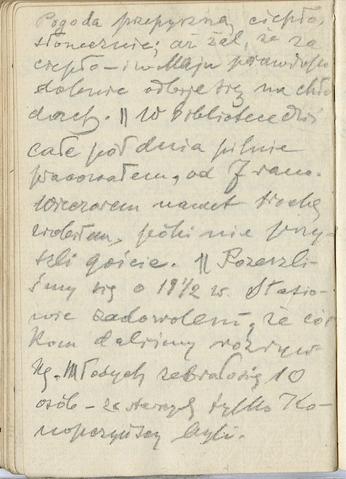 Pogoda przepyszna, ciepło,
słonecznie; aż żal, że za
ciepło – i w Maju prawdopo
dobnie odbije się na chło
dach. || W bibliotece dziś
całe pół dnia pilnie
pracowałem, od 7 rano.
Wieczorem nawet trochę
zrobiłem, póki nie przy-
szli goście. || Rozeszli-
śmy się o 11 1/2 w. Stasio-
wie zadowoleni, że cór
kom daliśmy rozryw
kę. Młodych zebrało się 10
osób – ze starszych tylko Ko-
nopczyńscy byli.